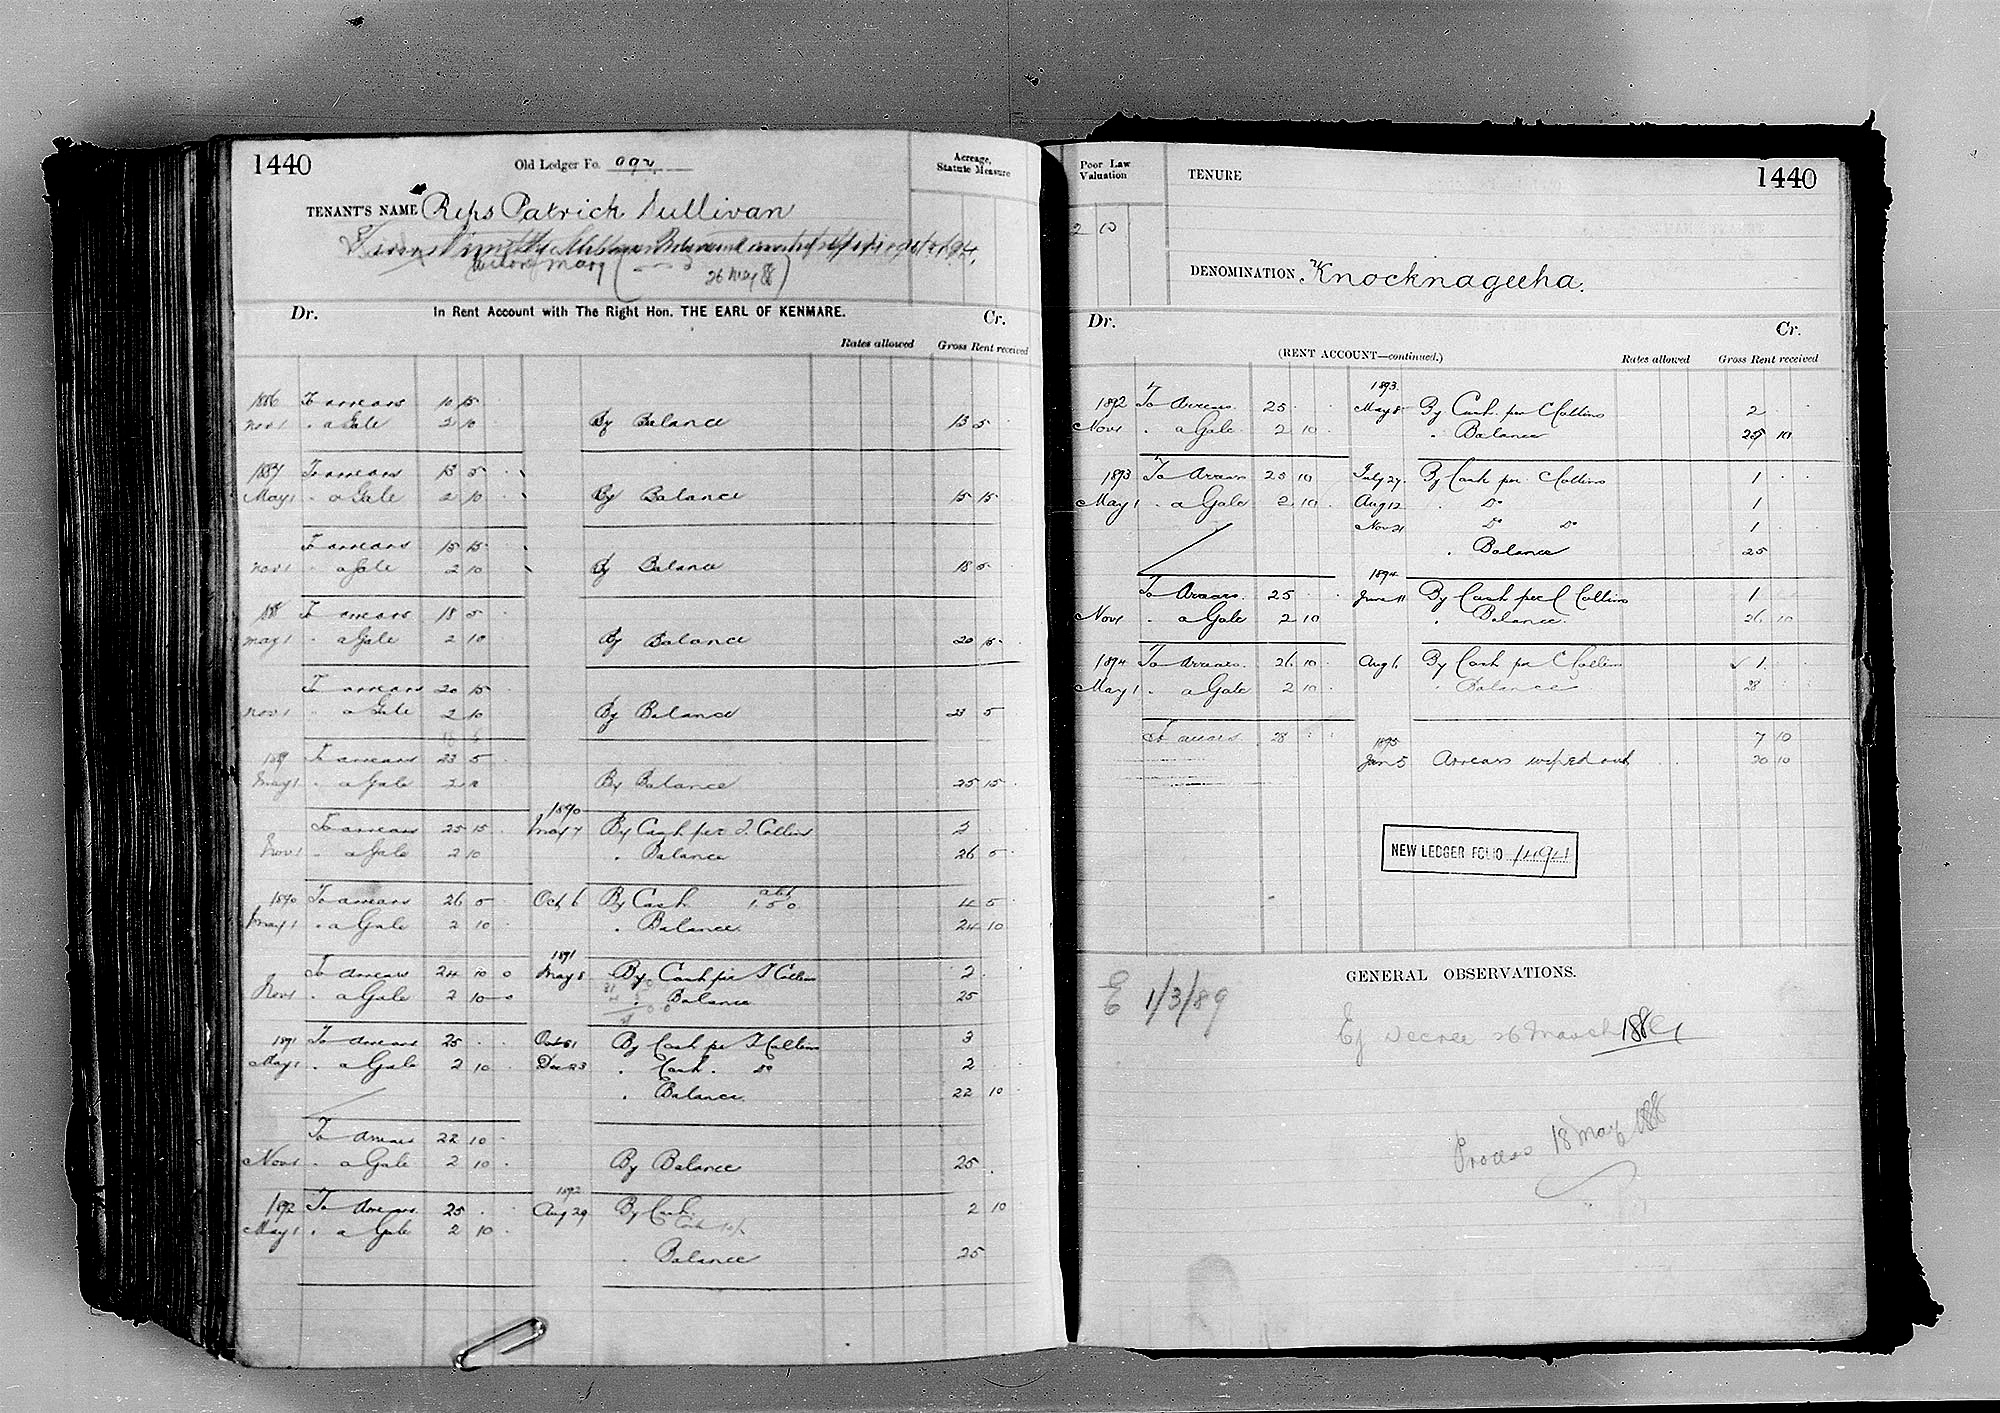 1440
Old Ledger Fo. 997
Acreage,
Statute Measure
TENANT'S NAME Reps Patrick Sullivan
Widow Mary (
26 May 88)
Dr. In Rent Account with The Right Hon. THE EARL OF KENMARE. Cr.
Rates allowed Gross Rent received
1886 To arrears 10 15
Nov 1 " a Gale 2 10 By Balance 13 5
1887 To arrears 13 5
May 1 " a Gale 2 10 By Balance 15 15
To arrears 15 15
Nov 1 " a Gale 2 10 By Balance 18 5
188 To arrears 18 5
May 1 " a Gale 2 10 By Balance 20 15
To arrears 20 15
Nov 1 " a Gale 2 10 By Balance 23 5
1889 To arrears 23 5
May 1 " a Gale 2 10 By Balance 25 15
1890
To arrears 25 15 May 7 By Cash per T. Collins 2
Nov 1 " a Gale 2 10 " Balance 26 5
1890 To arrears 26 5 Oct 6 By Cash 1.5.0 4 5
May 1 " a Gale 2 10 " Balance 24 10
1891
To arrears 24 10 0 May 8 By Cash per T Collins 2
Nov 1 " a Gale 2 10 0 " Balance 25
1891 To arrears 25 Oct 31 By Cash per T Collins 3
May 1 " a Gale 2 10 Dec 23 " Cash Do 2
" Balance 22 10
To arrears 22 10
Nov 1 " a Gale 2 10 By Balance 25
1892
1892 To Arrears 25 Aug 29 By Cash 2 10
May 1 " a Gale 2 10
" Balance 25
Poor Law
Valuation
TENURE
1440
2 10
DENOMINATION, Knocknageeha.
Dr. Cr.
(RENT ACCOUNT—continued.) Rates allowed Gross Rent received
1893
1892 To Arrears 25 May 8 By Cash per C Collins 2
Nov 1 " a Gale 2 10 " Balance 25 10
1893 To Arrears 25 10 July 27 By Cash per C Collins 1
May 1 " a Gale 2 10 Aug 12 " Do 1
Nov 21 Do Do 1
" Balance 25
1894
To Arrears 25 June 11 By Cash per C Collins 1
Nov 1 " a Gale 2 10 " Balance 26 10
1894 To Arrears 26 10 Aug 6 By Cash per C Collins 1
May 1 " a Gale 2 10 " Balance 28
To arrears 28 7 10
1895
Jan 5 Arrears wiped out 20 10
NEW LEDGER FOLIO 1494
GENERAL OBSERVATIONS.
E 1/3/89
Ej Decree 26 March
Process 18 May 1888